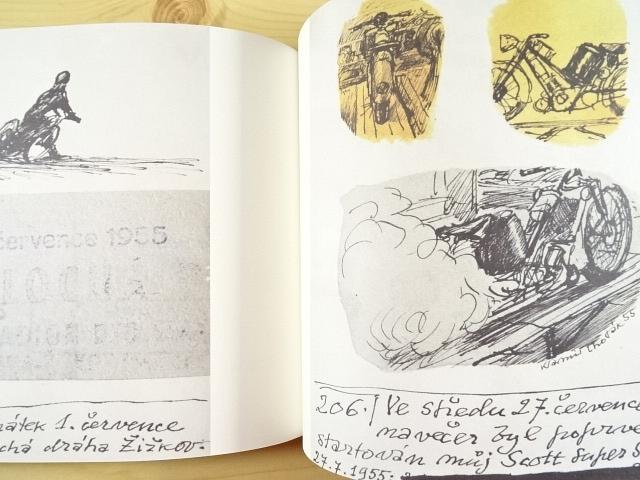 července 1955
pátek 1. července
chá dráha Žižkov.
Kamil Lhoták 55
206. Ve středu 27. července
navečer byl poprvé
startován můj Scott Super S
27.7.1955.